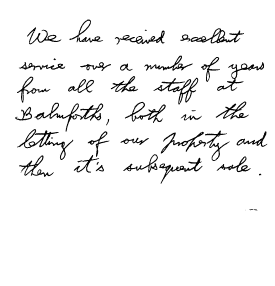 We have received excellent
service over a number of years
from all the staff at
Balmforths, both in the
letting of our property and
then it's subsequent sale.